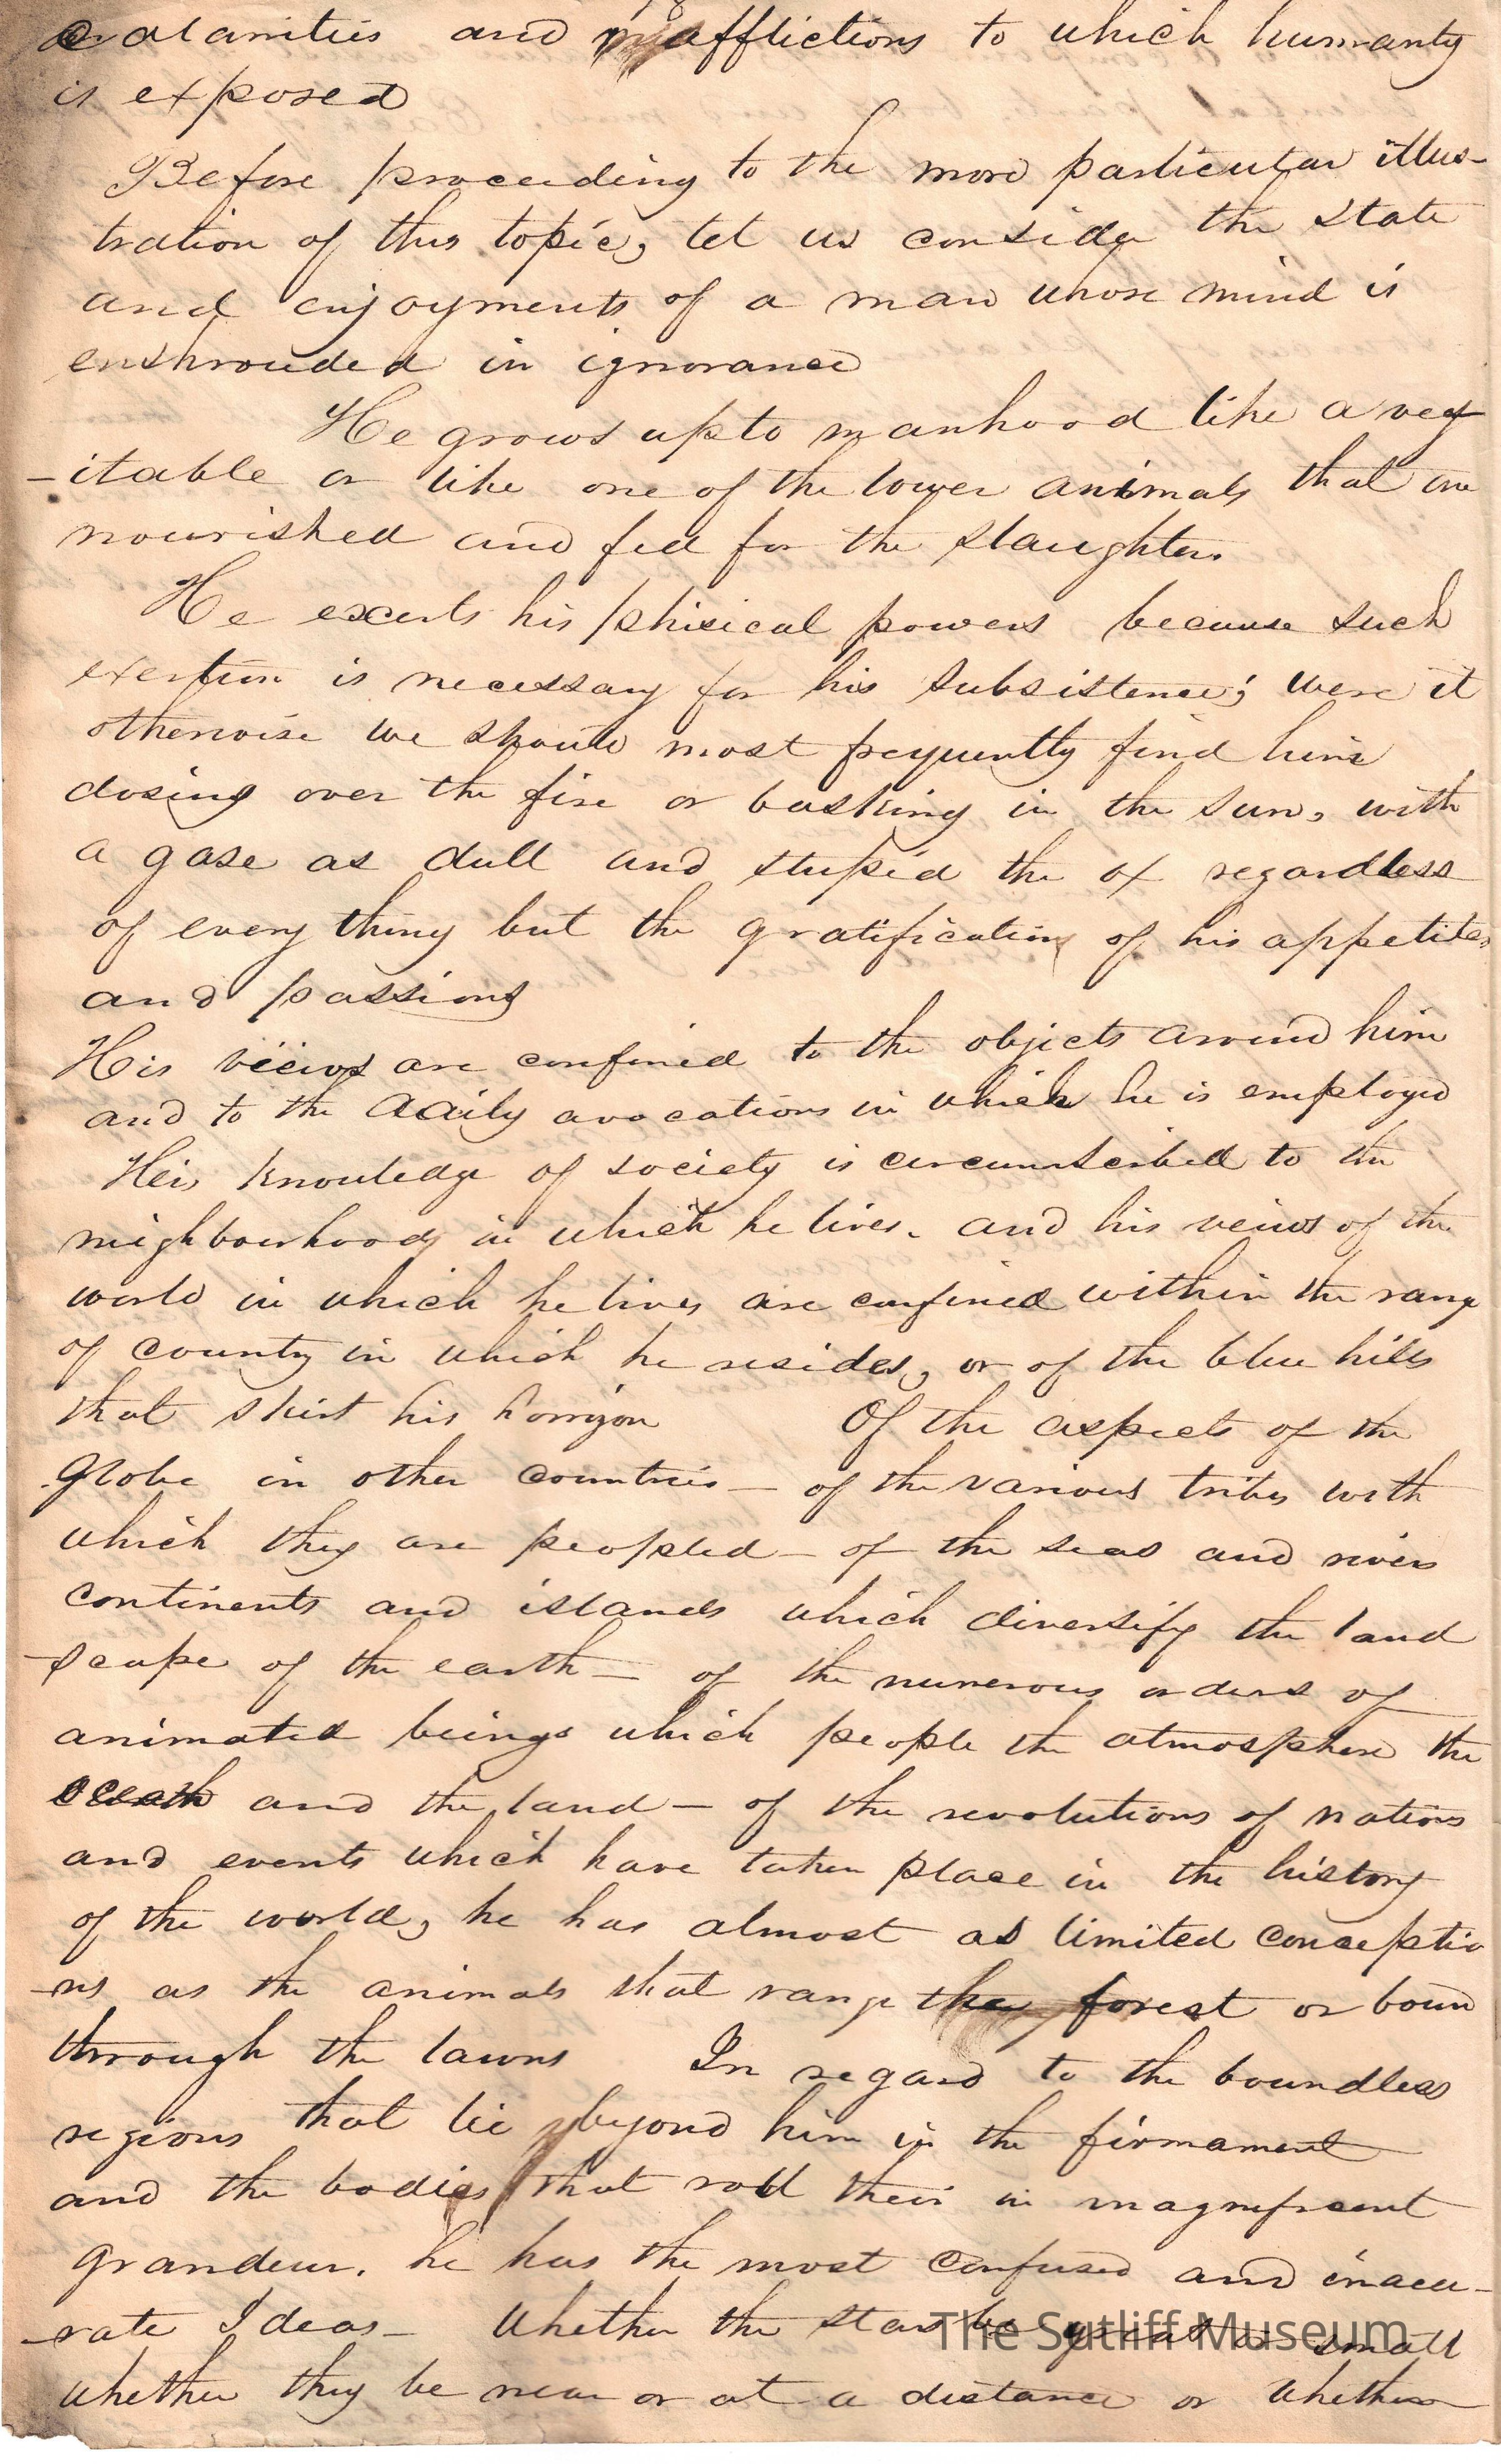 calamities and afflictions to which humanty
is exposed
Before proceeding to the more particular illus-
tration of this topic, let us consider the state
and enjoyments of a man whose mind is
enshrouded in ignorance
He grows up to manhood like a veg
-itable or like one of the lower animals that are
nourished and fed for the slaughter.
He excerts his phisical powers because such
exertion is necessary for his subsistence; were it
otherwise we should most frequently find him
dosing over the fire or basking in the sun, with
a gase as dull and stupid the ox regardless
of every thing but the gratification of his appetites
and passions
His veiws are confined to the objects around him
and to the daily avocations in which he is employed
His knowledge of society is circumscribed to the
nieghbourhood in which he lives. and his veiws of the
world in which he lives are confined within the range
of county in which he resides, or of the blue hills
that skirt his horrizon Of the aspects of the
globe in other countries — of the various tribes with
which they are peopled — of the seas and rivers
continents and islands which diversify the land
-scape of the earth — of the numerous orders of
animated beings which people the atmosphere the
and the land — of the revolutions of nations
and events which have taken place in the history
of the world, he has almost as limited conceptio
-ns as the animals that range the forest or boun
through the lawns In regard to the boundless
regions that lie beyond him in the firmament
and the bodies that roll their in magnificent
grandeur. he has the most confused and inaccu-
-rate Ideas — Whether the stars be great or small
whether they be near or at a distance or whether
The Sutliff Museum